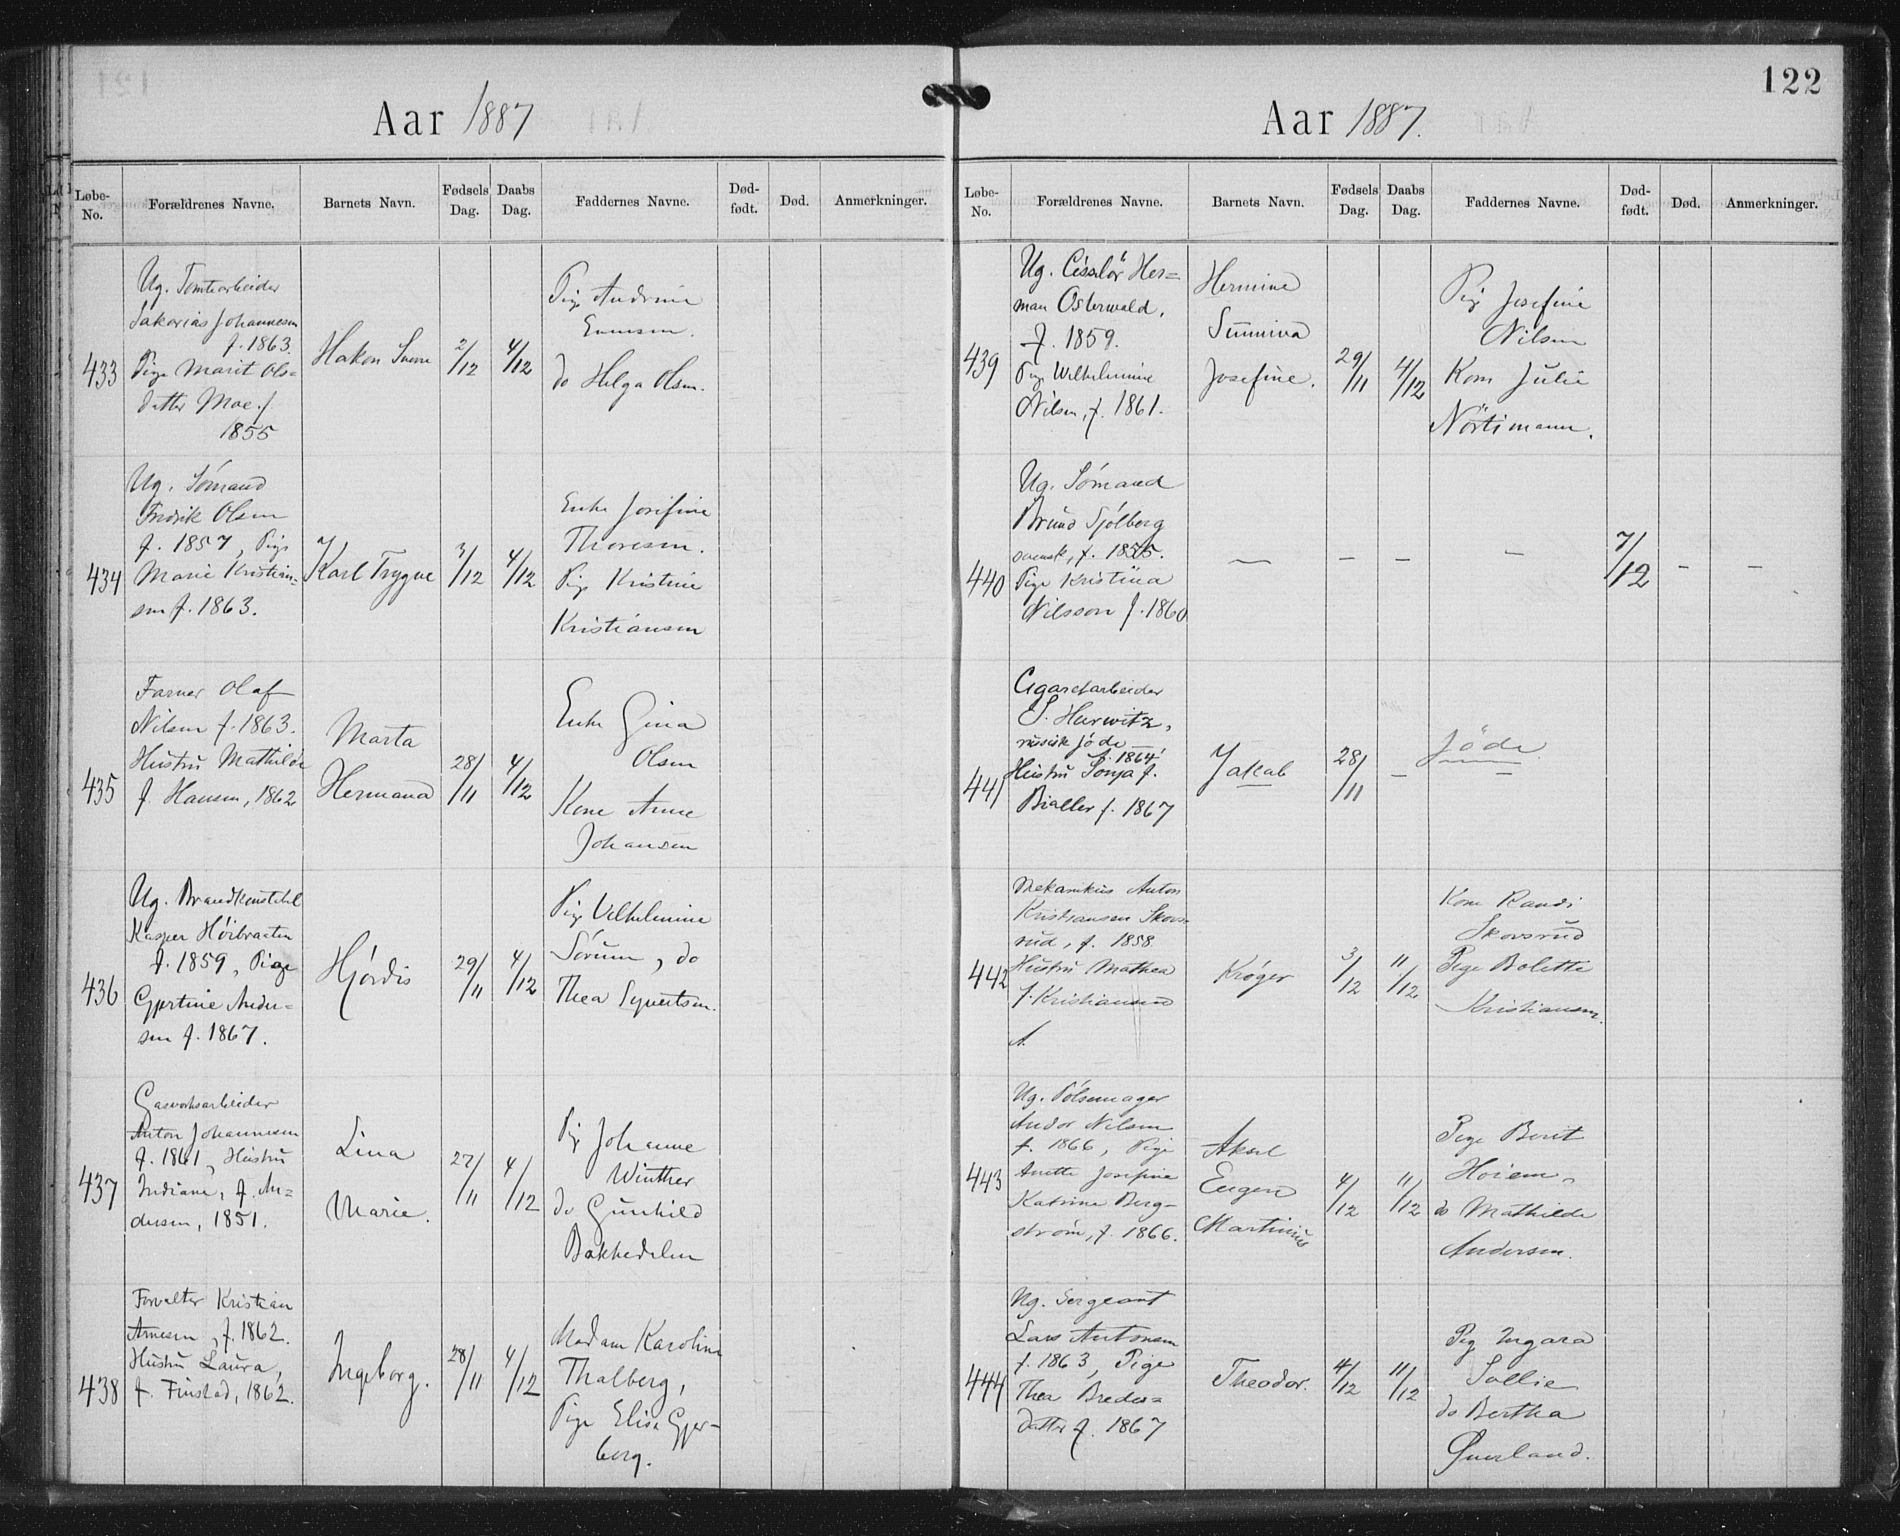 122
Aar 1887
Løbe-No.
Forældrenes Navne.
Barnets Navn.
Fødsels Dag.
Daabs Dag.
Faddernes Navne.
Død-født.
Død.
Anmerkninger.
433
Ug. Tomtearbeider
Sakarias Johannesen
f. 1863.
Pige Marit Ols=
datter Moe f.
1855
Hakon
2/12
4/12
Pige Andrine
Evensen.
do Helga Olsen.
434
Ug. Sømand
Fredrik Olsen
f. 1857, Pige
Marie Kristian-
sen f. 1863.
Karl Trygve
3/12
4/12
Enke Josifine
Thoresen.
Pige Kristine
Kristiansen
435
Farver Olaf
Nilsen f. 1863.
Hustru Mathilde
f. Hansen, 1862
Marta
Hermana
28/11
4/12
Enke Gina
Olsen
Kone Anne
Johansen
436
Ug. Brandkonstabel
Kasper Høibraaten
f. 1859, Pige
Gjertine Ander-
sen f. 1867.
Hjørdis
29/11
4/12
Pige Vilhelmine
Sørum, do
Thea Syvertsen.
437
Gasverksarbeider
Anton Johannesen
f. 1861, Hustru
Indiane, f. An=
dersen, 1851.
Lina
Marie.
27/11
4/12
Pige Johanne
Winther
do Gunhild
Bakkedalen
438
Forvalter Kristian
Arnesen, f. 1862.
Hustru Laura,
f. Finstad, 1862.
Ingeborg.
28/11
4/12
Madam Karoline
Thalberg,
Pige Elise Gjer-
berg.
Aar 1887.
Løbe-No.
Forældrenes Navne.
Barnets Navn.
Fødsels Dag.
Daabs Dag.
Faddernes Navne.
Død-født.
Død.
Anmerkninger.
439
Ug. Ciselør Her=
man Osterwald,
f. 1859.
Pige Wilhelmine
Nilsen, f. 1861.
Hermine
Sunniva
Josefine.
29/11
4/12
Pige Josefine
Nilsen
Kone Julie
440
Ug. Sømand
Bruno Sjølberg
svensk, f. 1855.
Pige Kristina
Nilsson f. 1860
—
—
—
—
7/12
-
-
441
Cigaretarbeider
S. Hurwitz,
russisk jøde
f. 1864
Hustru Sonja f.
Bialler f. 1867
Jakob
28/11
—
Jøde
—
442
Mekanikus Anton
Kristiansen Skovs=
rud, f. 1858
Hustru Mathea
f. Kristiansen
Krøger
3/12
11/12
Kone Randi
Skovsrud
Pige Bolette
Kristiansen.
443
Ug. Pølsemager
Andor Nilsen
f. 1866, Pige
Anette Josefine
Katrine Berg-
strøm, f. 1866.
Aksel
Eugen
Martinius
4/12
11/12
Pige Berit
Hoiem,
do Mathilde
Andersen.
444
Ug. Sergeant
Lars Antonsen
f. 1863, Pige
Thea Bredes=
datter f. 1867
Theodor.
4/12
11/12
Pig Ingara
Sollie
do Bertha